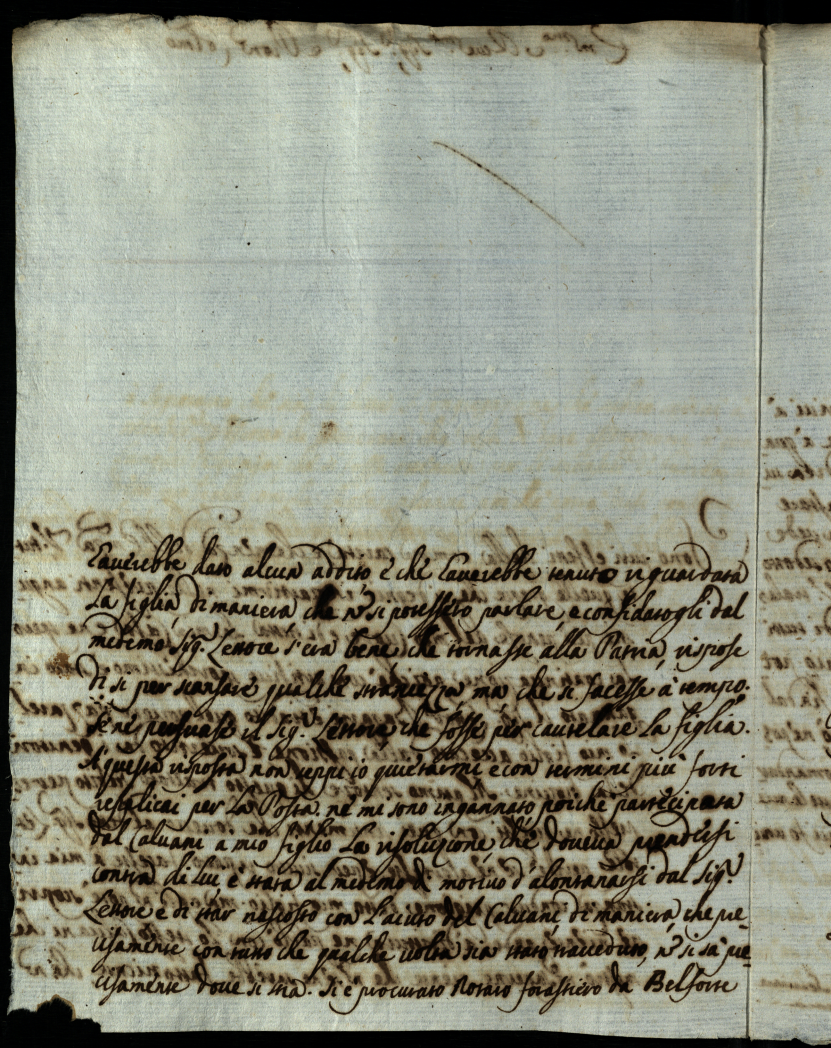 L'averebbe dato alcun addito, e che l'averebbe tenuto riguardata
La figlia, di maniera che nõ si potessero parlare, e confidatogli dal
medemo Sig.r Lettore s'era bene, che tornasse alla Patria, rispose
di si per scansare qualche stranezza, ma che si facesse à tempo.
Se ne persuase il Sig.r Lettore, che fosse per cautelare La figlia.
A questa risposta non seppi io quietarmi e con termini più forti
replicai per La Posta. ne mi sono ingannato, poiche partecipata
dal Calvani a mio figlio La risoluzione, che doveva prendersi
contra di Lui, è stata al medemo di motivo d'alontanarsi dal Sig.r
Lettore e di star nascosto con L'aiuto del Calvani, di maniera, che pre-
cisamente con tutto che qualche volta sia stato traveduto, nõ si sà pre-
cisamente dove si stia. Si è procurato Notaro forastiero da Belforte